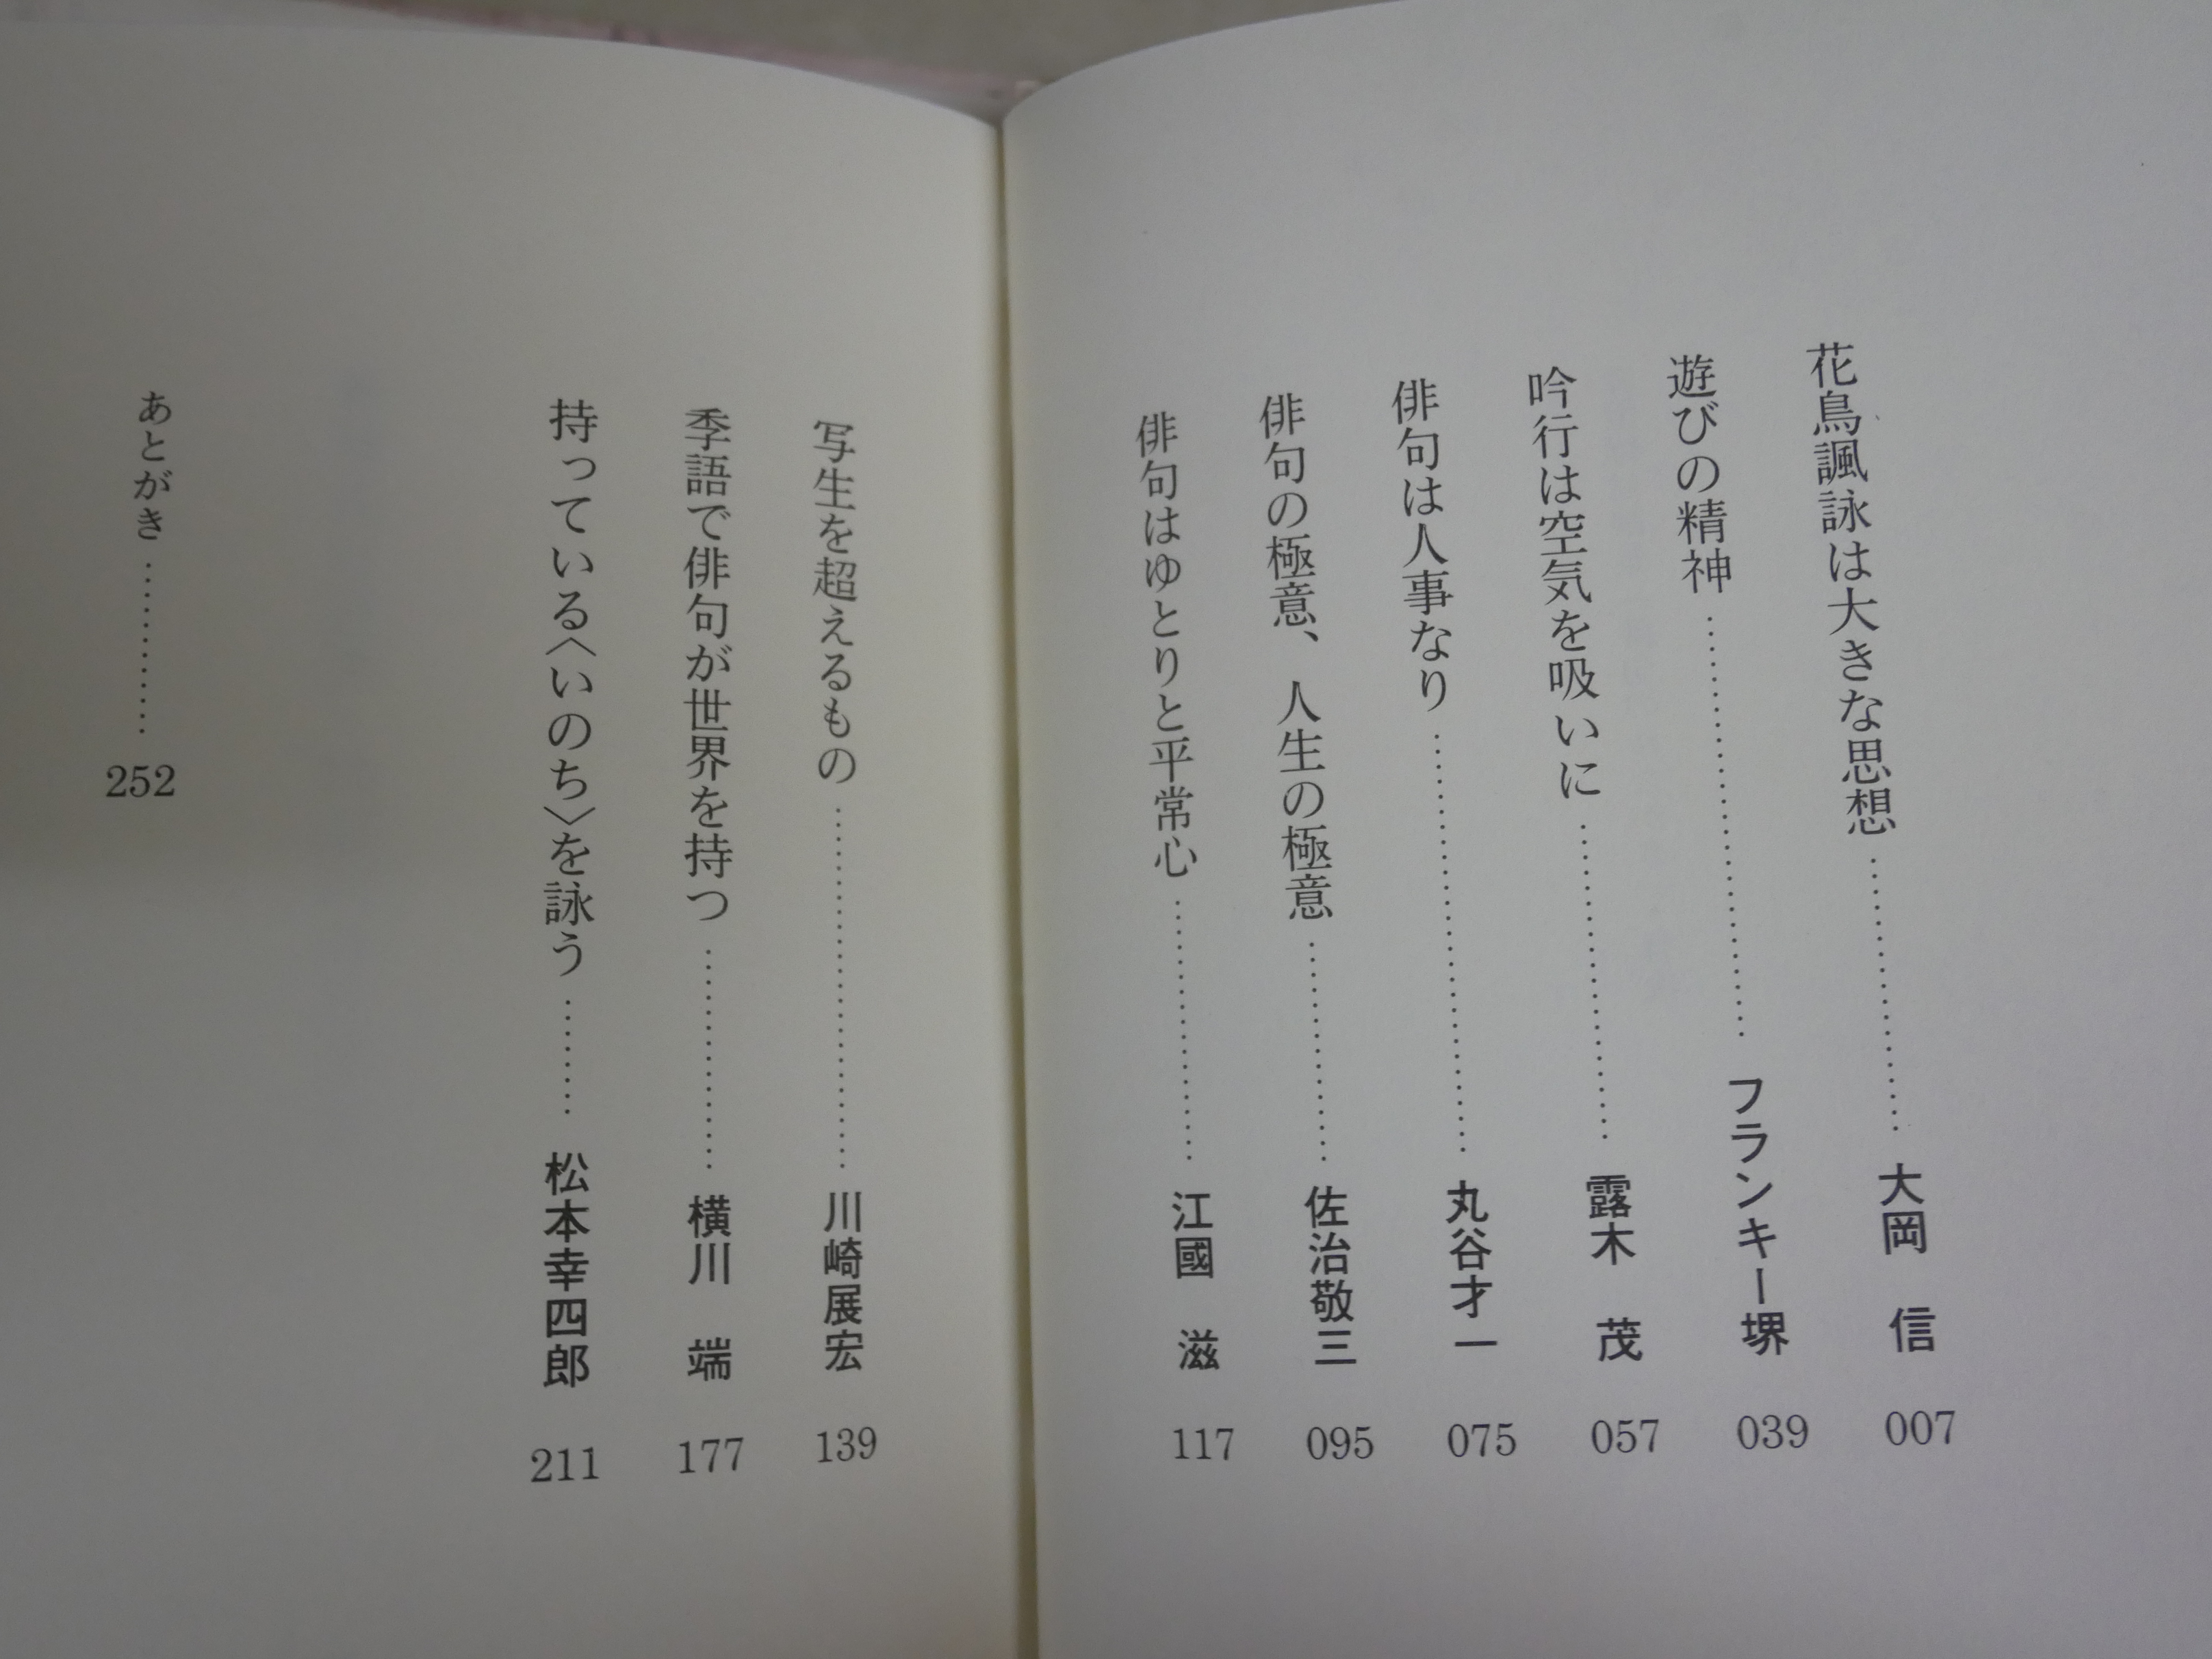 花鳥諷詠は大きな思想…………………大岡　信　007
遊びの精神…………………………フランキー堺　039
吟行は空気を吸いに……………………露木　茂　057
俳句は人事なり…………………………丸谷才一　075
俳句の極意、人生の極意………………佐治敬三　095
俳句はゆとりと平常心…………………江國　滋　117
写生を超えるもの………………………川崎展宏　139
季語で俳句が世界を持つ………………横川　端　177
持っている〈いのち〉を詠う………松本幸四郎　211
あとがき…………252